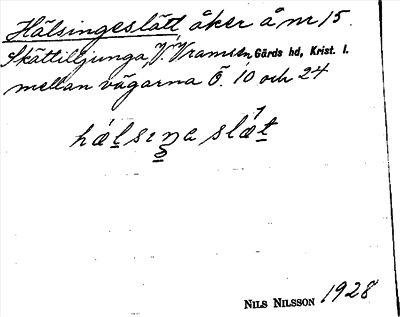 Hälsingeslätt åker å nr 15.
Skättilljunga, V. Vrams sn Gärds hd, Krist. l.
mellan vägarna Ö. 10 och 24
hǽlsiŋa slæ̀t
NILS NILSSON 1928